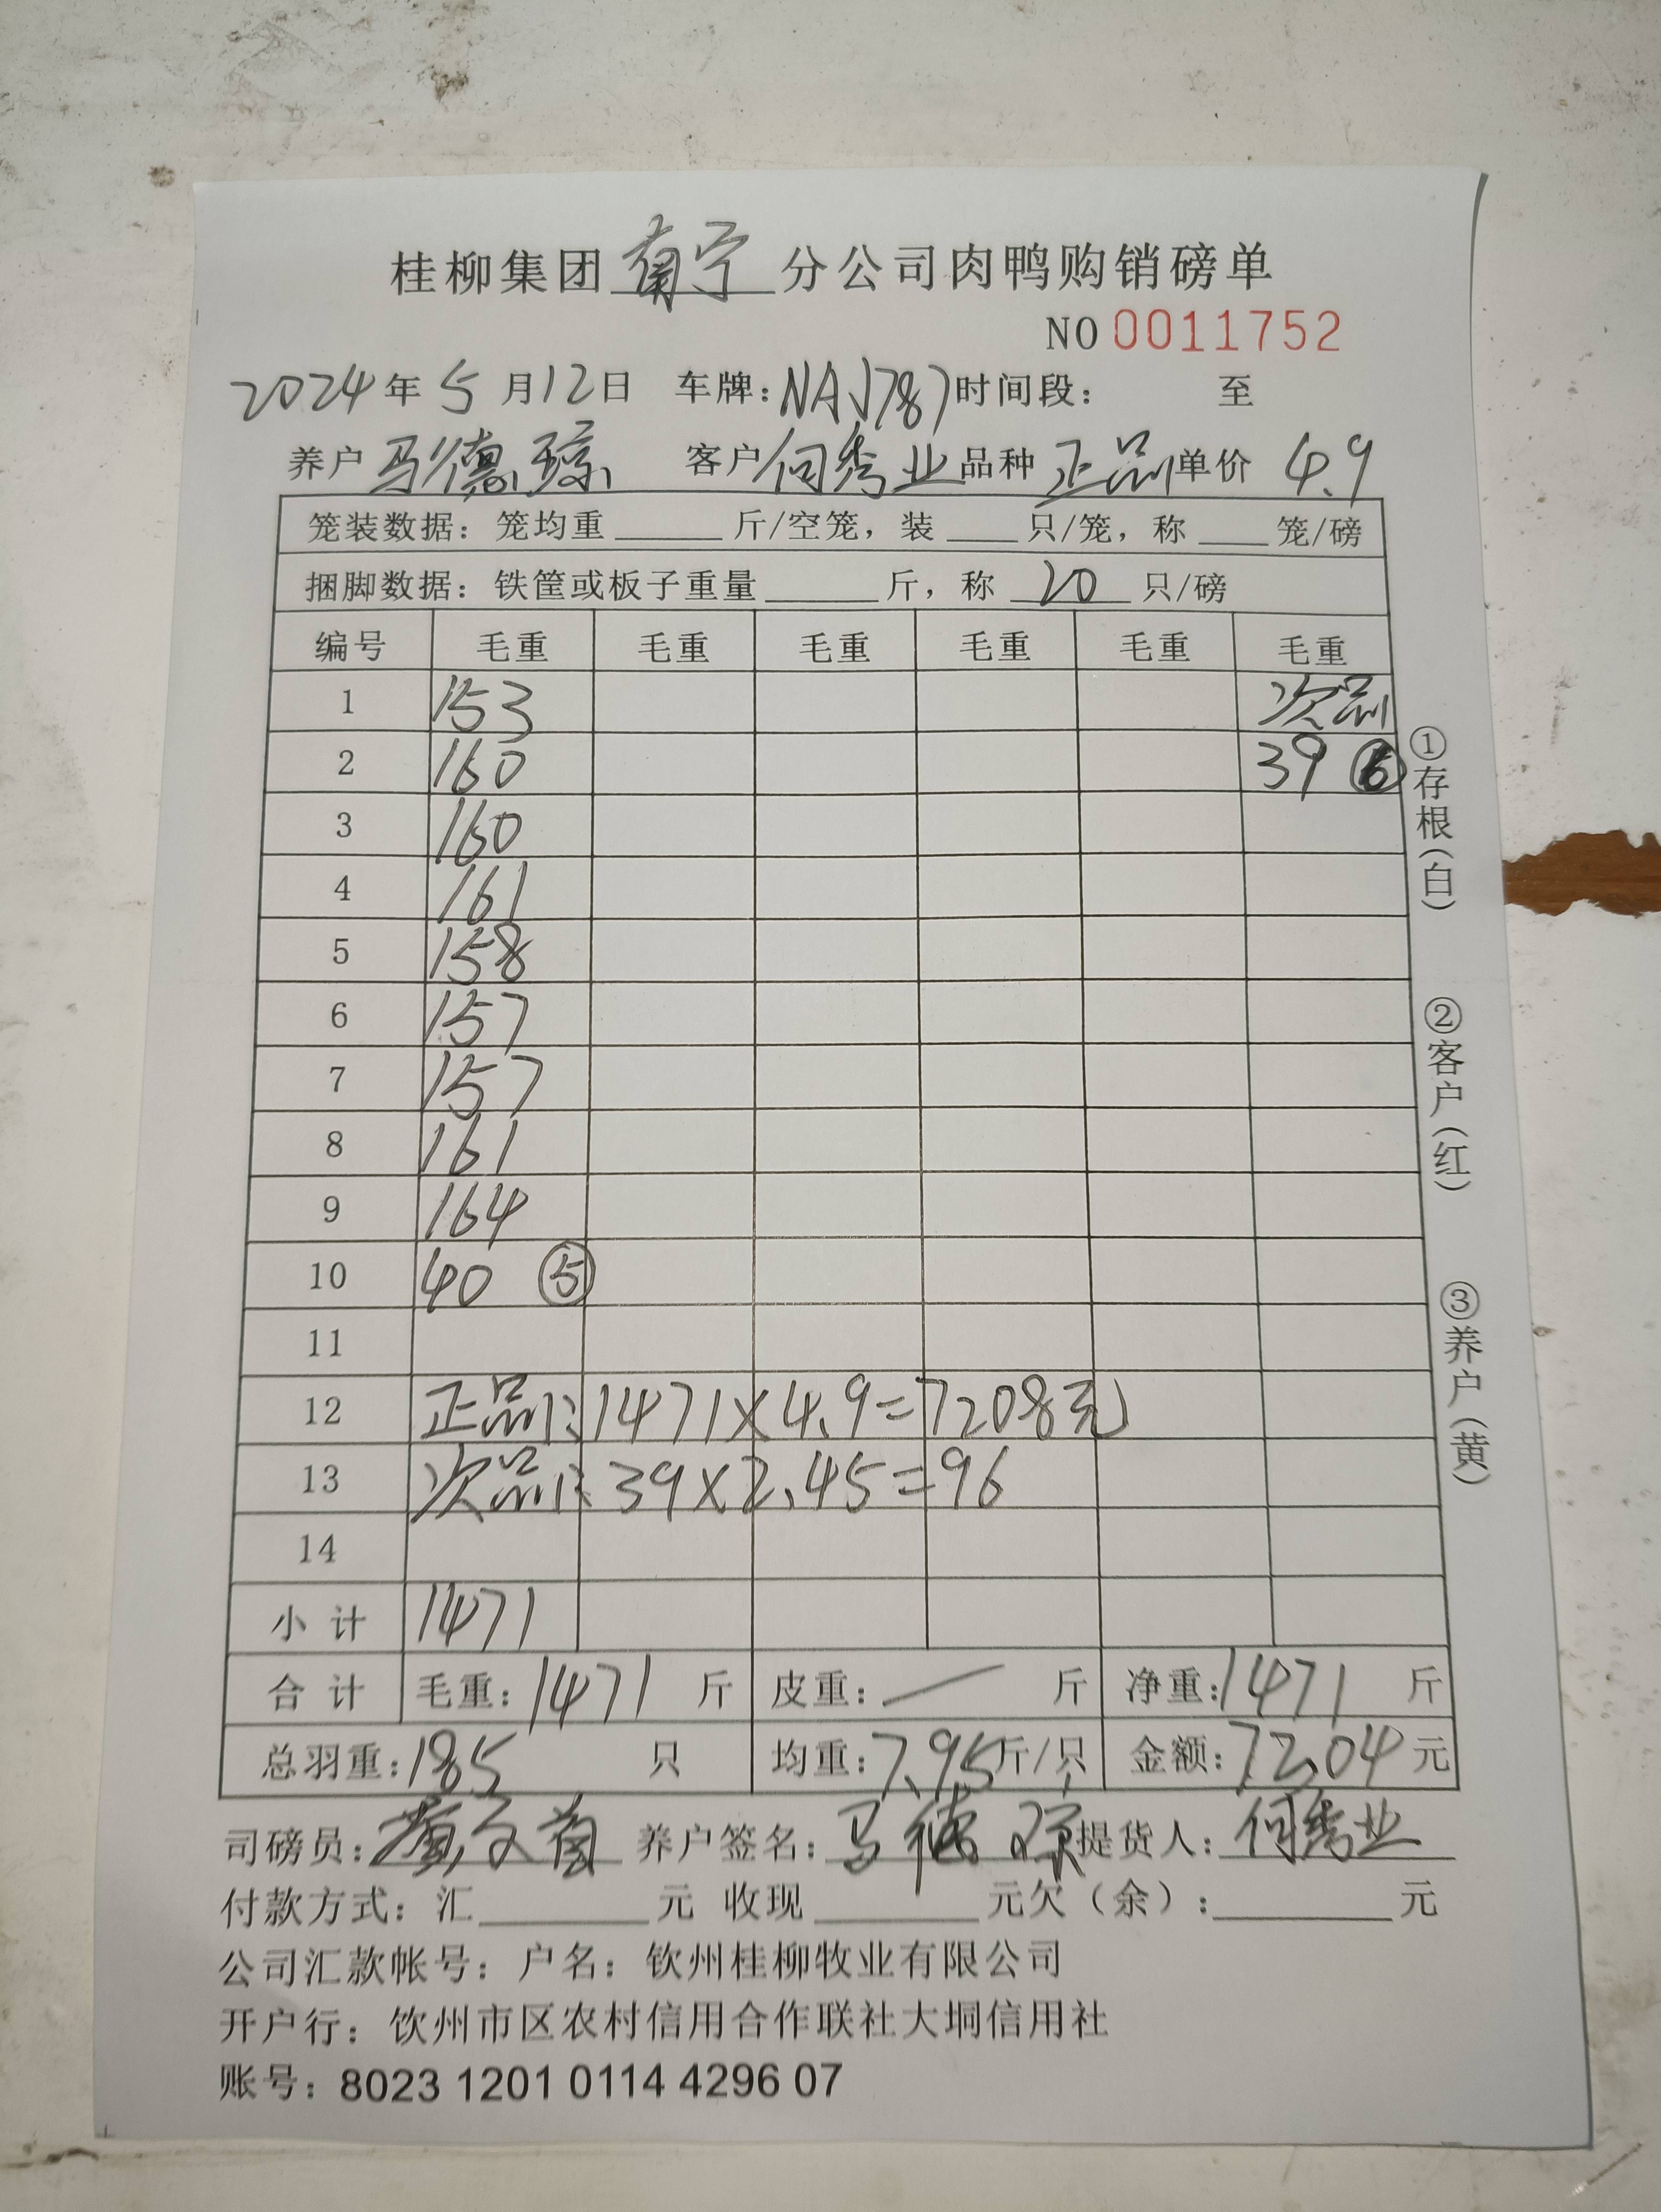 桂柳集团南宁分公司肉鸭购销磅单
NO 0011752
2024年5月12日 车牌:NAJ787 时间段: 至
养户 马德琼 客户 何秀业 品种 正品 单价 4.9
笼装数据:笼均重 斤/空笼,装 只/笼,称 笼/磅
捆脚数据:铁筐或板子重量 斤,称 20 只/磅
编号 毛重 毛重 毛重 毛重 毛重 毛重
1 153 次品
2 160 39
3 160
4 161
5 158
6 157
7 157
8 161
9 164
10 40 ⑤
11
12 正品:1471×4.9=7208元
13 次品:39×2.45=96
14
小计 1471
合计 毛重:1471 斤 皮重:/ 斤 净重:1471 斤
总羽重:185 只 均重:7.95斤/只 金额:7204元
司磅员: 养户签名:马德琼 提货人:何秀业
付款方式:汇 元 收现 元欠(余): 元
公司汇款帐号:户名:钦州桂柳牧业有限公司
开户行:钦州市区农村信用合作联社大垌信用社
账号:8023 1201 0114 4296 07
①存根(白)
②客户(红)
③养户(黄)